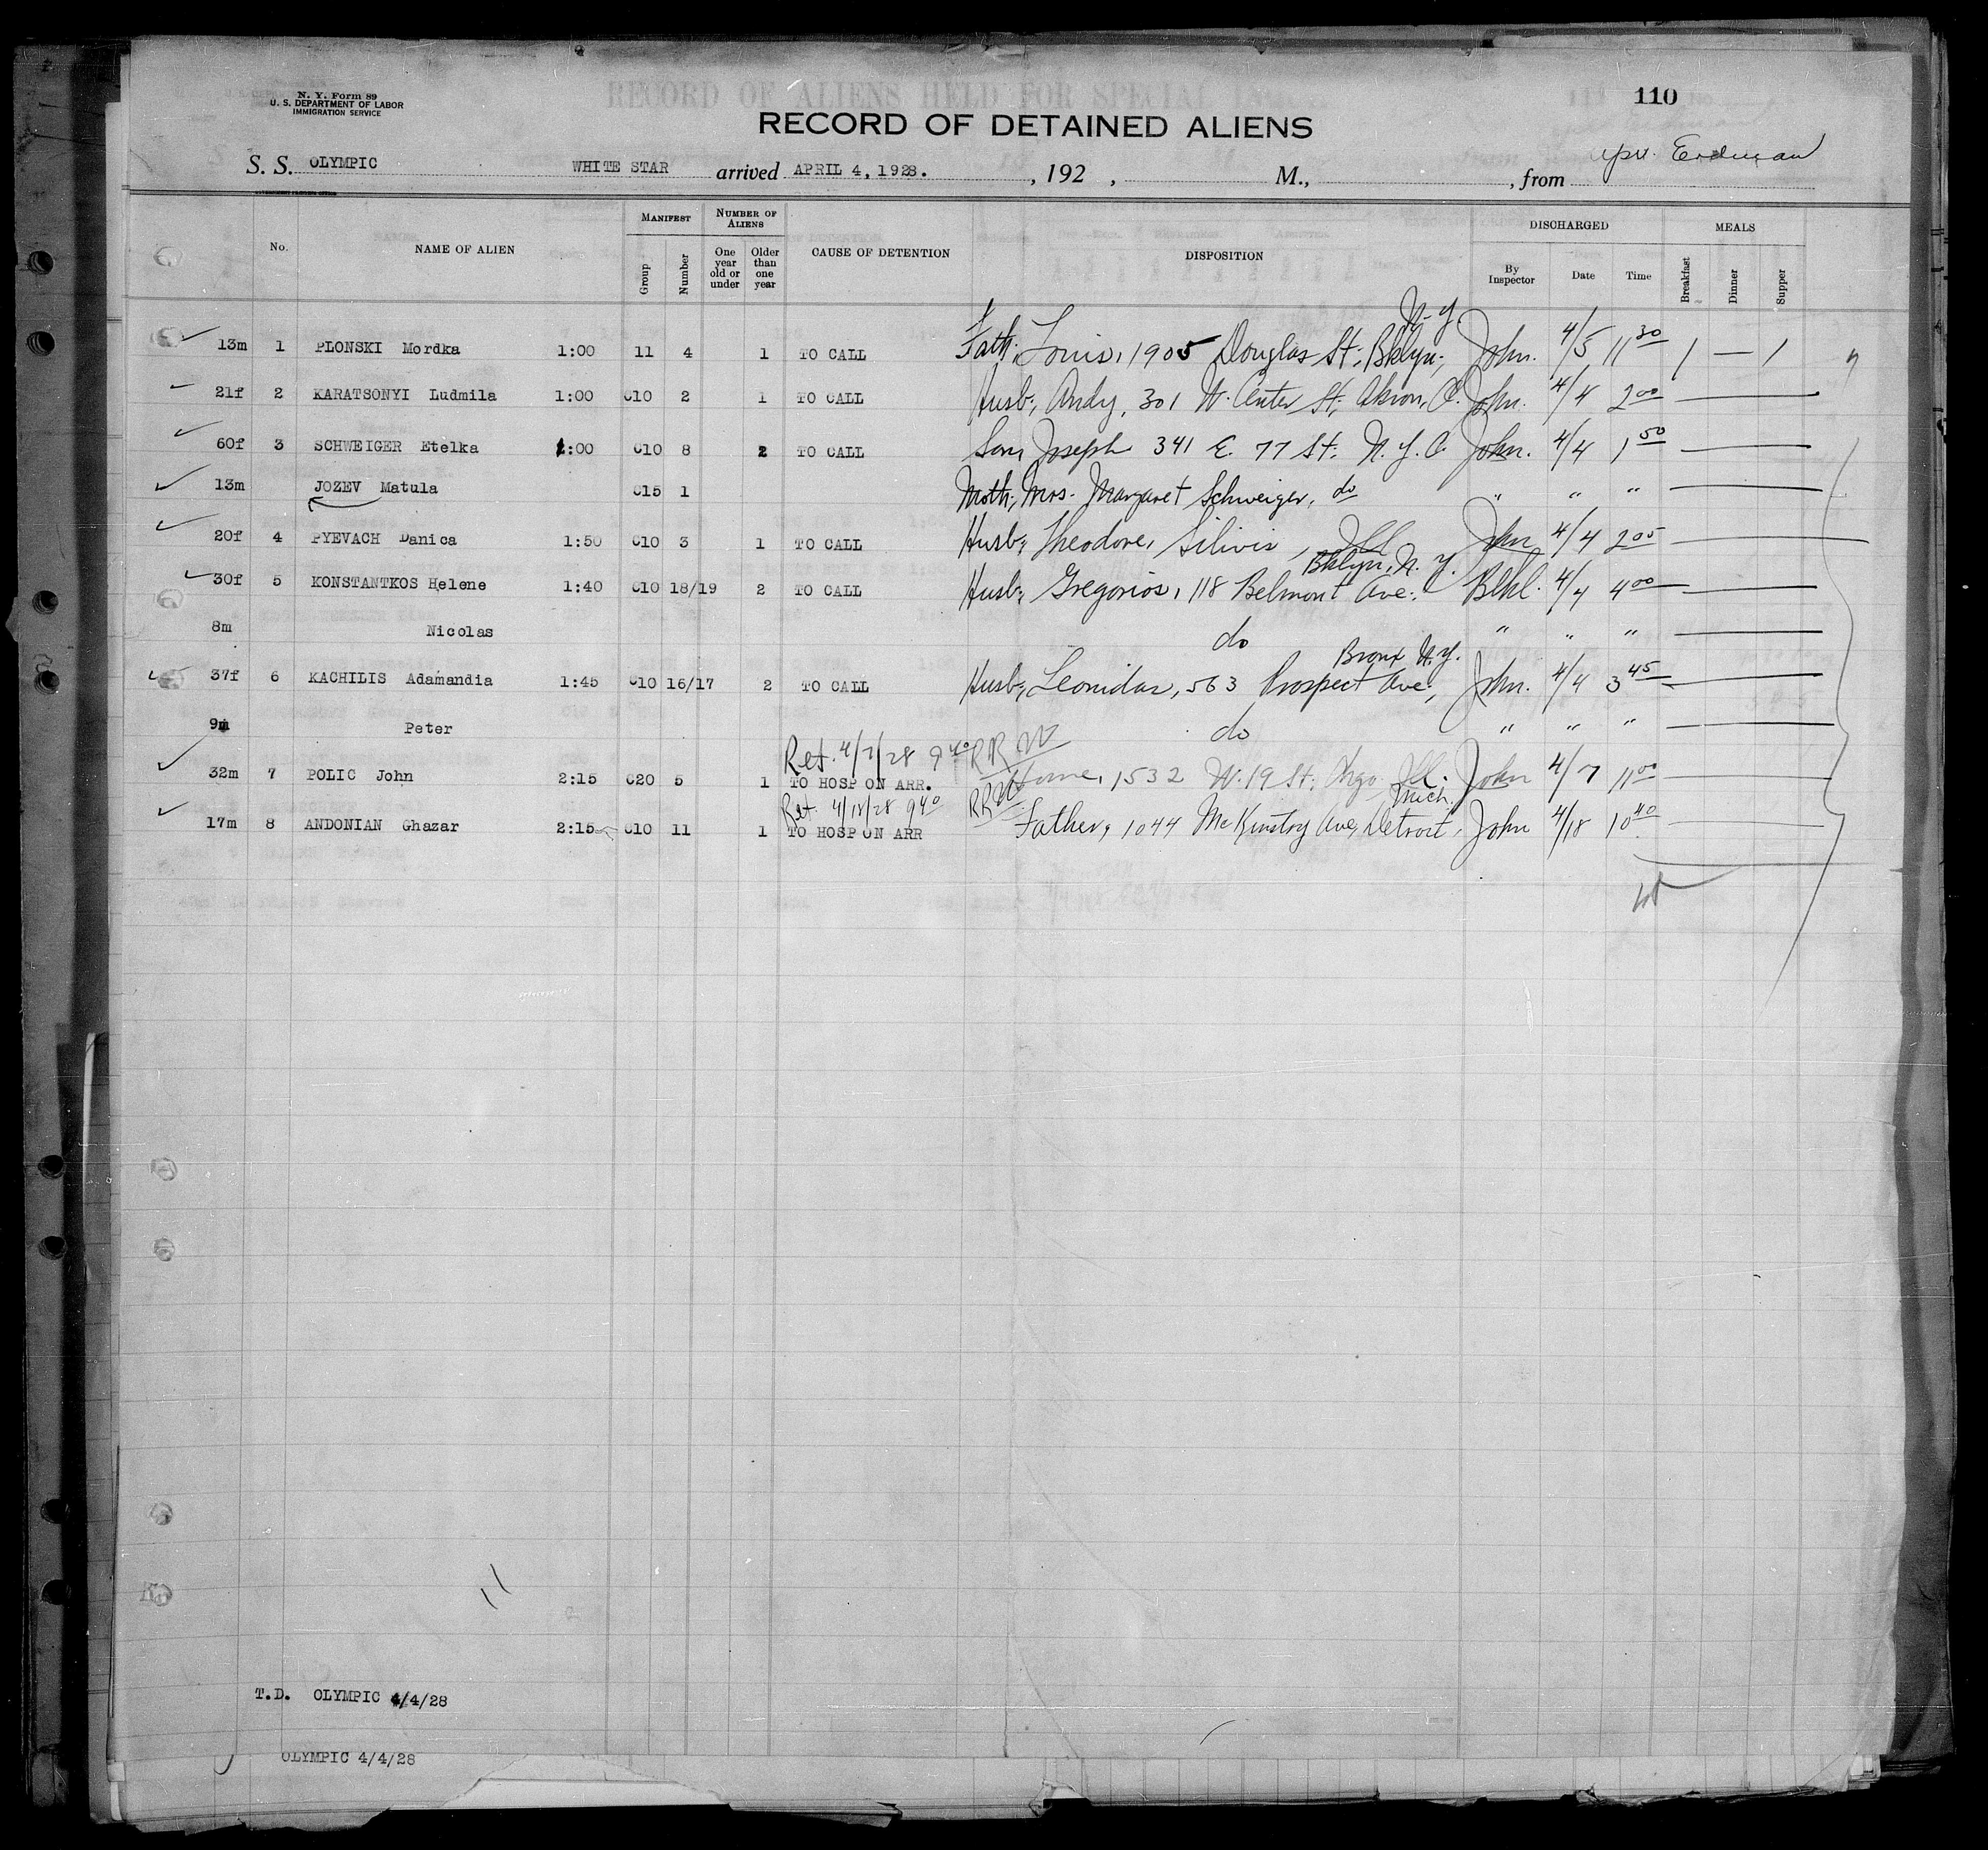 N. Y. Form 89
U. S. DEPARTMENT OF LABOR
IMMIGRATION SERVICE
110
RECORD OF DETAINED ALIENS
S. S. OLYMPIC WHITE STAR arrived APRIL 4, 1928. , 192 , M., , from
No. NAME OF ALIEN MANIFEST Group Number NUMBER OF ALIENS One year old or under Older than one year CAUSE OF DETENTION DISPOSITION DISCHARGED By Inspector Date Time MEALS Breakfast Dinner Supper
N.Y.
13m 1 PLONSKI Mordka 1:00 11 4 1 TO CALL Fath; Louis, 1905 Douglas St; Bklyn; John. 4/5 11 30 1 — 1
21f 2 KARATSONYI Ludmila 1:00 C10 2 1 TO CALL Husb; Andy, 301 W. Center St; Akron, O. John. 4/4 2 00
60f 3 SCHWEIGER Etelka 1:00 C10 8 2 TO CALL Son, Joseph 341 E. 77 St; N.Y.C John. 4/4 1 50
13m JOZEV Matula C15 1 Moth; Mrs. Margaret Schweiger, do " " "
20f 4 PYEVACH Danica 1:50 C10 3 1 TO CALL Husb; Theodore, Silivis, Ill John 4/4 2 05
Bklyn, N.Y.
30f 5 KONSTANTKOS Helene 1:40 C10 18/19 2 TO CALL Husb; Gregorios, 118 Belmont Ave; 4/4 4 00
8m Nicolas do " " "
Bronx N.Y.
37f 6 KACHILIS Adamandia 1:45 C10 16/17 2 TO CALL Husb; Leonidas, 563 Prospect Ave; John. 4/4 3 45
9m Peter do " " "
Ret. 4/7/28 9 40 RRW
32m 7 POLIC John 2:15 C20 5 1 TO HOSP ON ARR. Home, 1532 W. 19 St; Chgo Ill. John 4/7 11 00
Ret. 4/18/28 9 40 RRW Mich.
17m 8 ANDONIAN Ghazar 2:15 C10 11 1 TO HOSP ON ARR Father, 1044 McKinstry Ave, Detroit, John 4/18 10 40
T.D. OLYMPIC 4/4/28
OLYMPIC 4/4/28